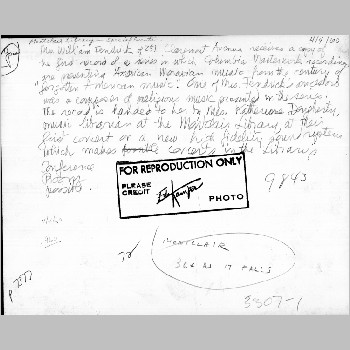 4/4/60
Mrs William Fenderick of 251 Claremont Avenue receives a copy of
the first record of a series in which Columbia Masterwork recordings
are presenting American Moravian music from the century of
forgotten American music. One of Mrs Fendrick's ancestors
was a composer of religious music presented in the series.
The record is handed to her by Miss Katherine Dougherty,
music librarian at the Montclair Library, at their
first concert on a new high fidelity phono system
which makes possible concerts in the Library's
Conference
Room
FOR REPRODUCTION ONLY
PLEASE
CREDIT
PHOTO
9843
MONTCLAIR
36% AS IT FALLS
3307-1